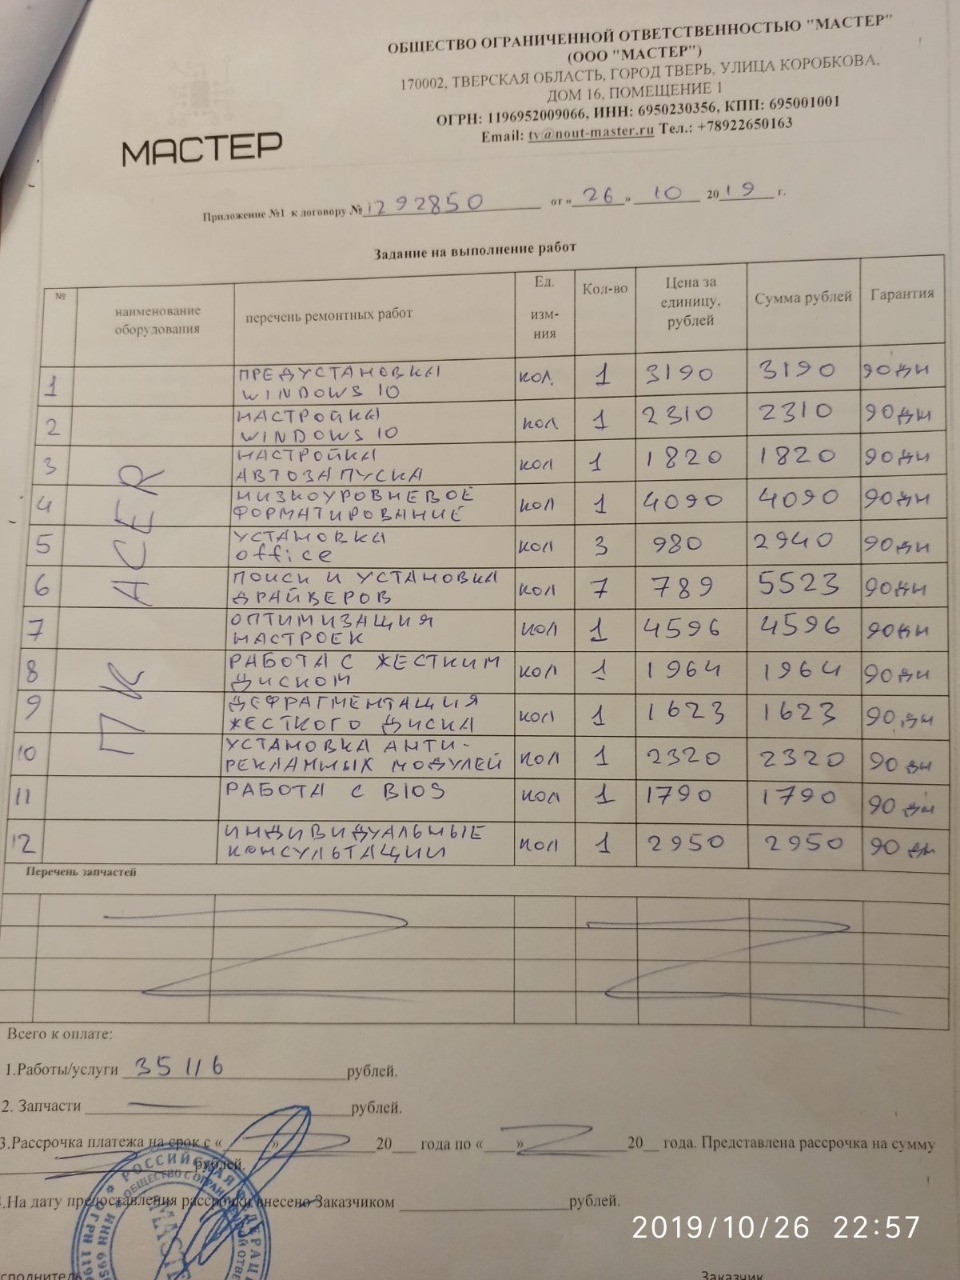 ОБЩЕСТВО ОГРАНИЧЕННОЙ ОТВЕТСТВЕННОСТЬЮ "МАСТЕР"
(ООО "МАСТЕР")
170002, ТВЕРСКАЯ ОБЛАСТЬ, ГОРОД ТВЕРЬ, УЛИЦА КОРОБКОВА,
ДОМ 16, ПОМЕЩЕНИЕ 1
ОГРН: 1196952009066, ИНН: 6950230356, КПП: 695001001
Email: tv@nout-master.ru Тел.: +78922650163
МАСТЕР
Приложение №1 к договору № 1292850 от «26» 10 2019 г.
Задание на выполнение работ
№ наименование оборудования перечень ремонтных работ Ед. изм-ния Кол-во Цена за единицу, рублей Сумма рублей Гарантия
ПК ACER
1 ПРЕДУСТАНОВКА WINDOWS 10 кол. 1 3190 3190 90дн
2 НАСТРОЙКА WINDOWS 10 кол 1 2310 2310 90дн
3 НАСТРОЙКА АВТОЗАПУСКА кол 1 1820 1820 90дн
4 НИЗКОУРОВНЕВОЕ ФОРМАТИРОВАНИЕ кол 1 4090 4090 90дн
5 УСТАНОВКА office кол 3 980 2940 90дн
6 ПОИСК И УСТАНОВКА ДРАЙВЕРОВ кол 7 789 5523 90дн
7 ОПТИМИЗАЦИЯ НАСТРОЕК кол 1 4596 4596 90дн
8 РАБОТА С ЖЕСТКИМ ДИСКОМ кол 1 1964 1964 90дн
9 ДЕФРАГМЕНТАЦИЯ ЖЕСТКОГО ДИСКА кол 1 1623 1623 90дн
10 УСТАНОВКА АНТИ-РЕКЛАМНЫХ МОДУЛЕЙ кол 1 2320 2320 90 дн
11 РАБОТА С BIOS кол 1 1790 1790 90 дн
12 ИНДИВИДУАЛЬНЫЕ КОНСУЛЬТАЦИИ кол 1 2950 2950 90 дн
Перечень запчастей
Всего к оплате:
1.Работы/услуги 35116 рублей.
2. Запчасти — рублей.
3.Рассрочка платежа на срок с « » 20 года по « » 20 года. Представлена рассрочка на сумму
рублей.
.На дату предоставления рассрочки внесено Заказчиком рублей.
РОССИЙСКАЯ ФЕДЕРАЦИ
ОБЩЕСТВО С ОГРАНИ
МАСТЕ
ОГРН 119 ИНН 695
2019/10/26 22:57
сполнитель Заказчик